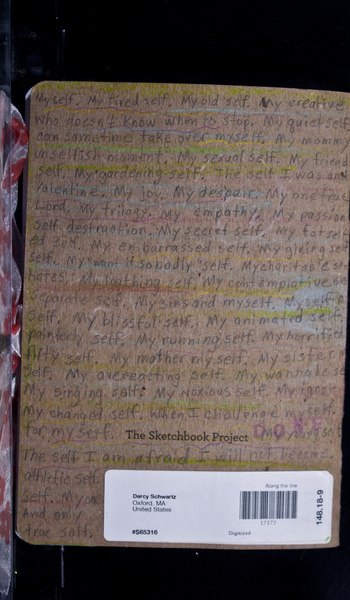 Myself. My tired self. My old self. My creative
who doesn't know when to stop. My quiet self.
can sometimes take over myself. My mommy
unselfish moment. My sexual self. My friend
self. My gardening self. The self I was and
Valentine. My joy. My despair. My one true
Lord. My trilogy. My empathy. My passion
self destruction. My secret self. My fat self
ed self. My embarrassed self. My giving self
self. My want it so badly self. My charitable se
hates. My loathing self. My contemplative se
separate self. My sins and myself. Myself a
self. My blissful self. My animated self.
pointedly self. My running self. My horrific
self. My mother myself. My sister m
self. My overeacting self. My wannabe s
My singing self. My noxious self. My
My changed self. When I challenge myself.
for myself. The Sketchbook Project DONE My young self
The self I am afraid I will not become.
athletic self
self. My
And only
true self.
Along the line
Darcy Schwartz
Oxford, MA
United States
17377
148.18-9
#S65316
Digitized